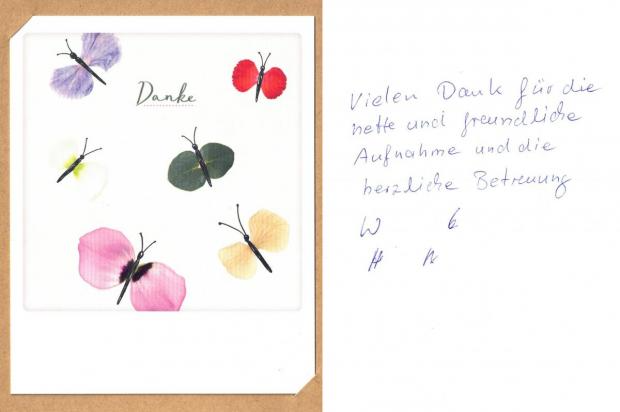 Danke
Vielen Dank für die
nette und freundliche
Aufnahme und die
herzliche Betreuung
W
H